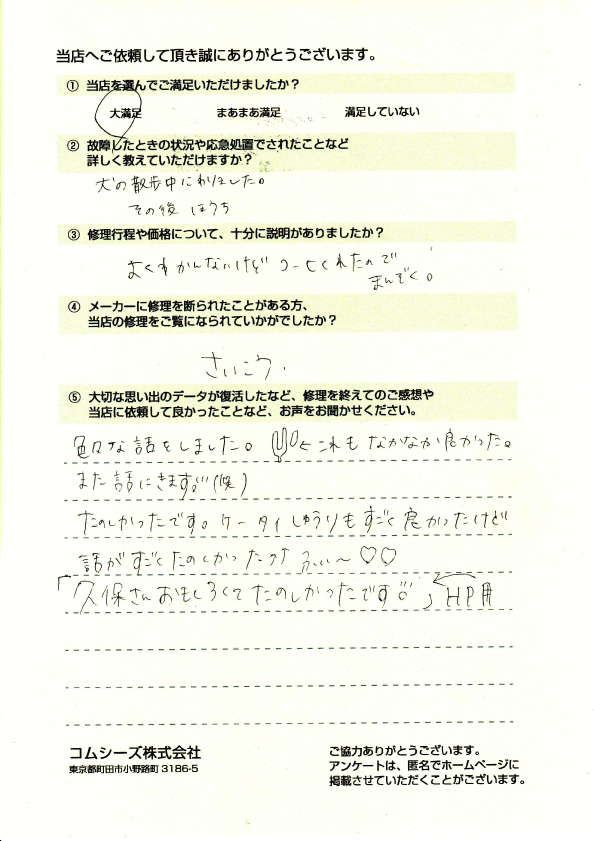 当店へご依頼して頂き誠にありがとうございます。
① 当店を選んでご満足いただけましたか？
大満足 まあまあ満足 満足していない
② 故障したときの状況や応急処置でされたことなど
詳しく教えていただけますか？
犬の散歩中にわりました。
その後 ほうち
③ 修理行程や価格について、十分に説明がありましたか？
よくわかんないけど してくれたので
まんぞく。
④ メーカーに修理を断られたことがある方、
当店の修理をご覧になられていかがでしたか？
さいこう.
⑤ 大切な思い出のデータが復活したなど、修理を終えてのご感想や
当店に依頼して良かったことなど、お声をお聞かせください。
色々な話をしました。 ←これもなかなか良かった。
また話にきます。(笑)
たのしかったです。ケータイしゅうりもすごく良かったけど
話がすごくたのしかったっす ♡♡
「久保さんおもしろくてたのしかったです。」← HP用
コムシーズ株式会社
東京都町田市小野路町 3186-5
ご協力ありがとうございます。
アンケートは、匿名でホームページに
掲載させていただくことがございます。